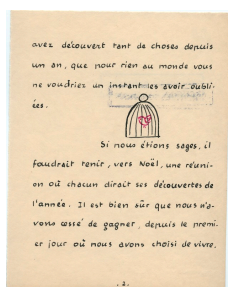 avez découvert tant de choses depuis
un an, que pour rien au monde vous
ne voudriez un instant les avoir oubli-
ées.
Si nous étions sages, il
faudrait tenir, vers Noël, une réuni-
on où chacun dirait ses découvertes de
l'année. Il est bien sûr que nous n'a-
vons cessé de gagner, depuis le premi-
er jour où nous avons choisi de vivre.
.2.